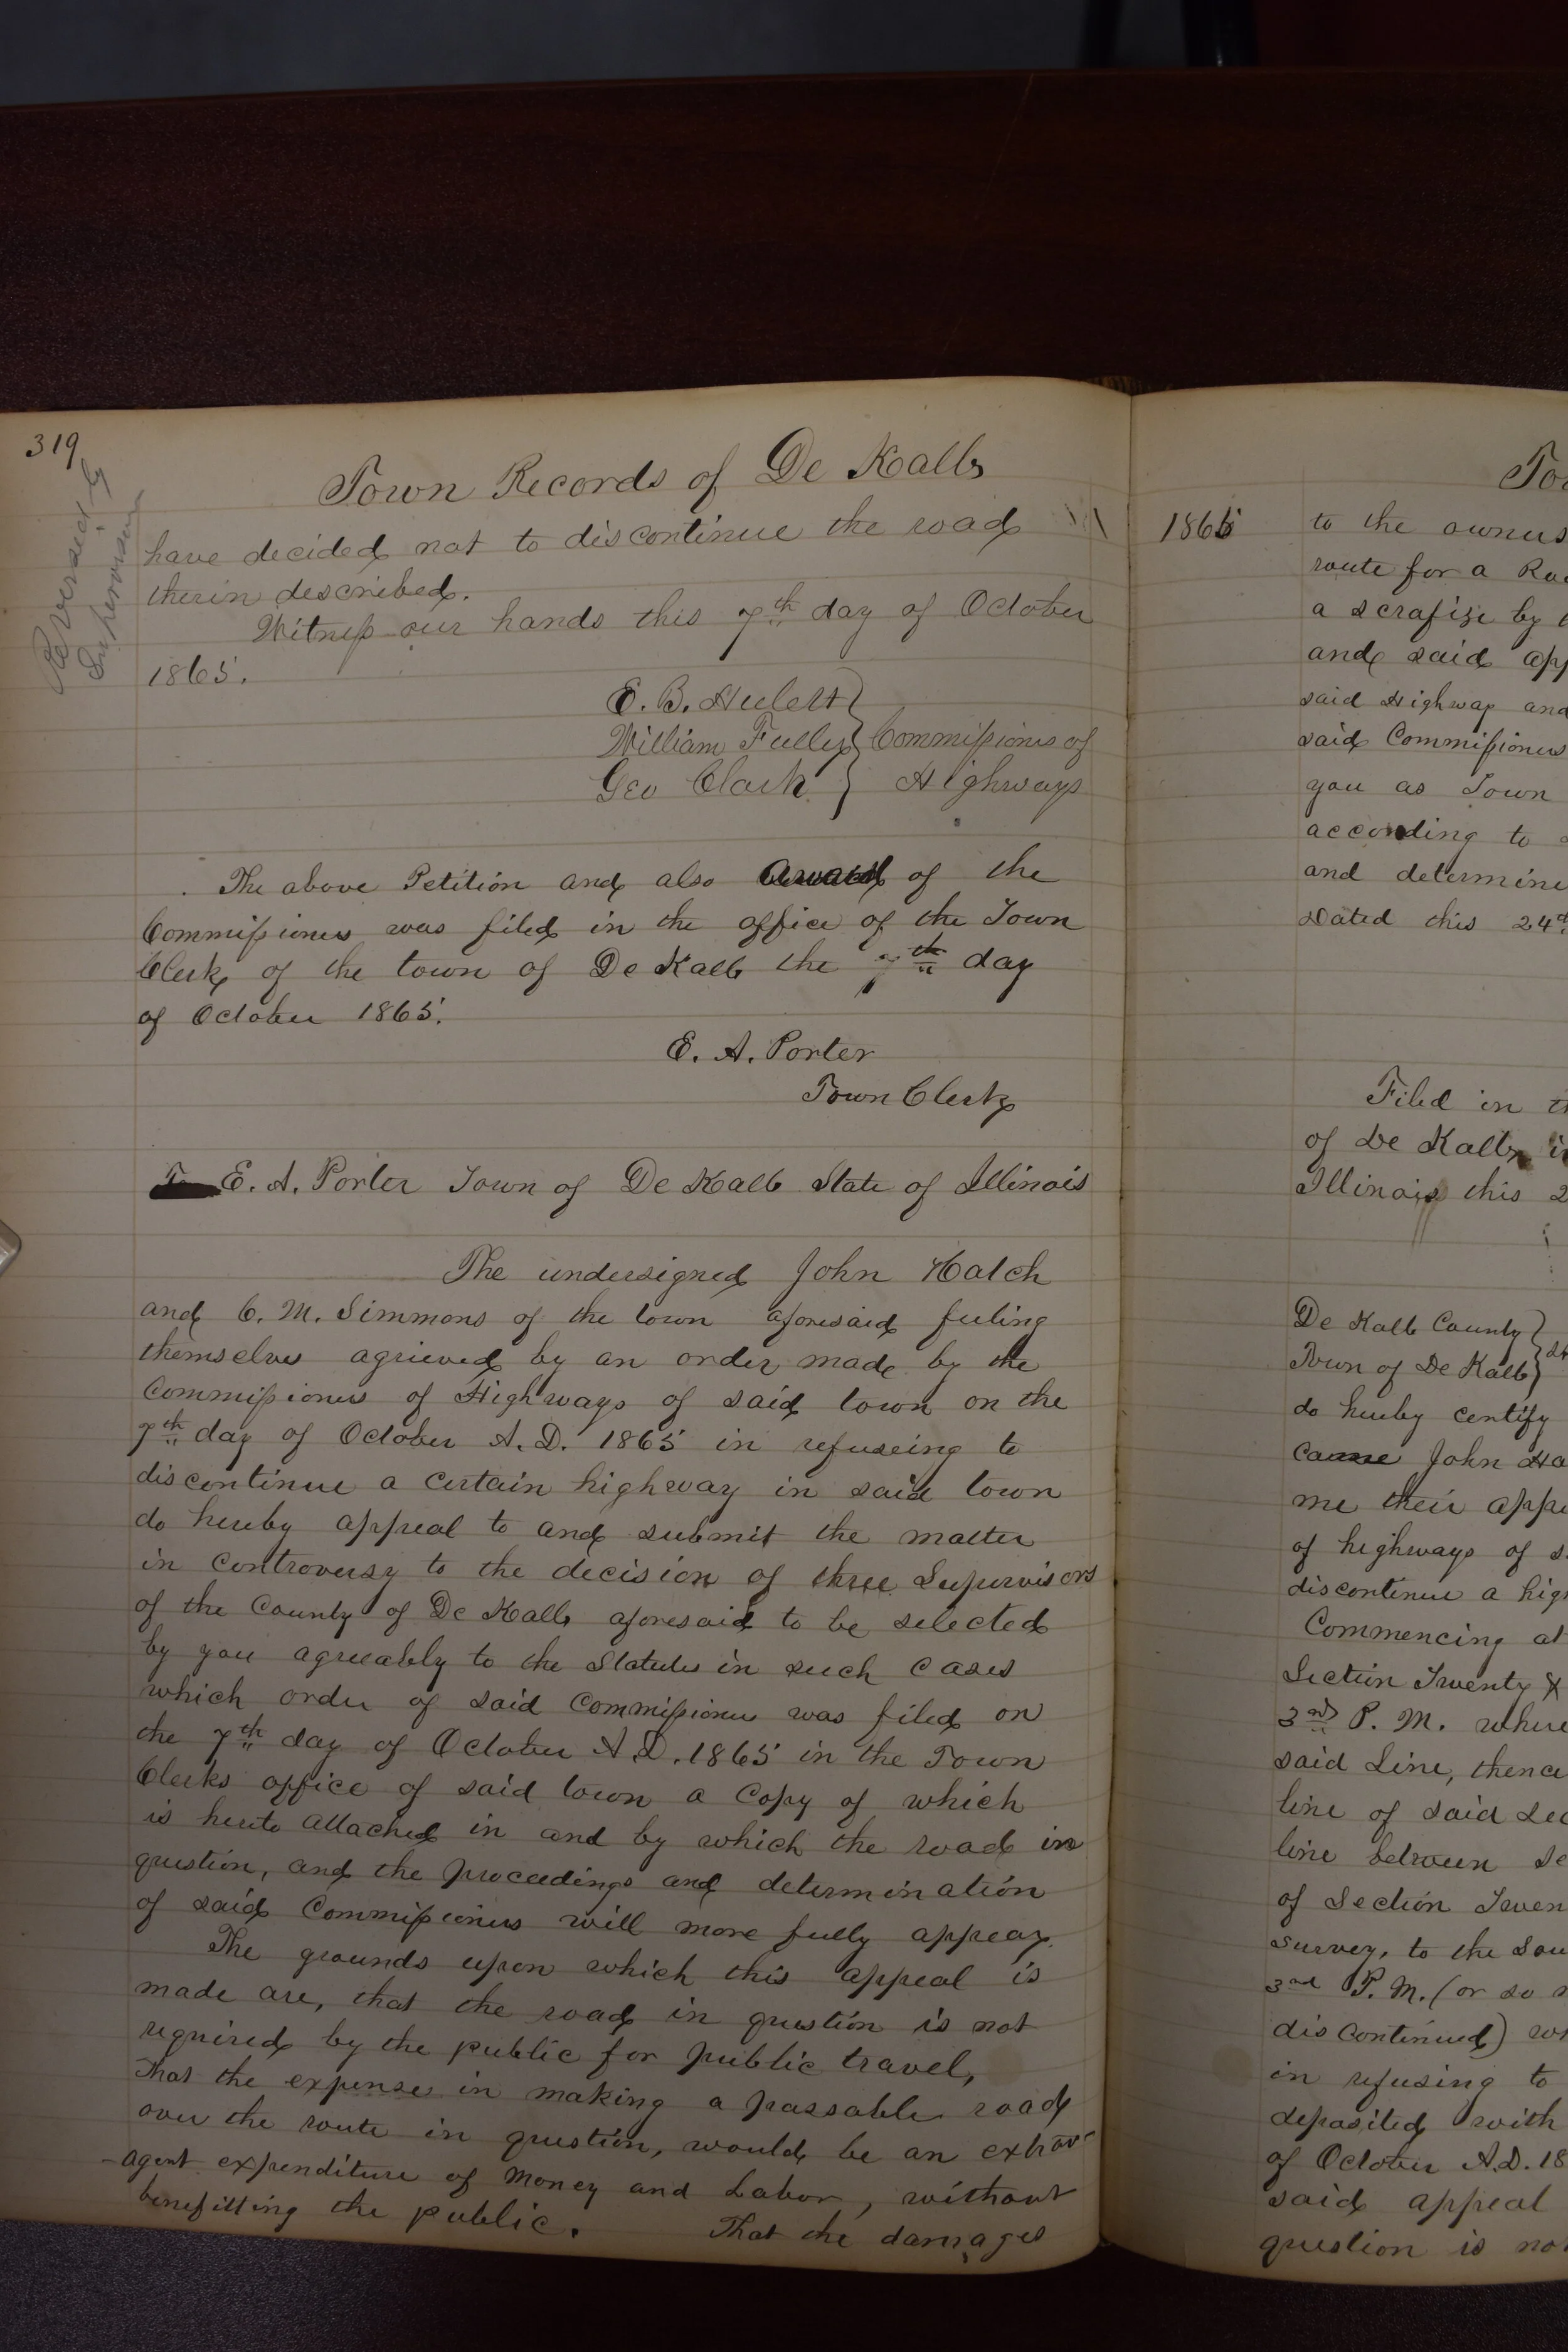 319
Reversed by
Supervisors
Town Records of De Kalb
have decided not to discontinue the road
therin described.
Witness our hands this 7th day of October
1865.
E. B. Hulert
William Fulley } Commissioners of
Geo Clark } Highways
The above Petition and also award of the
Commissioners was filed in the office of the Town
Clerk of the town of De Kalb the 7th day
of October 1865.
E. A. Porter
Town Clerk
E. A. Porter Town of De Kalb State of Illinois
The undersigned John Hatch
and C. M. Simmons of the town aforesaid feeling
themselves agrieved by an order made by the
Commissioners of Highways of said town on the
7th day of October A. D. 1865 in refuseing to
discontinue a certain highway in said town
do hereby appeal to and submit the matter
in controversy to the decision of three Supervisors
of the County of De Kalb aforesaid to be selected
by you agreeably to the Statutes in such cases
which order of said Commissioners was filed on
the 7th day of October A. D. 1865 in the Town
Clerks office of said town a Copy of which
is hereto attached in and by which the road in
question, and the proceedings and determination
of said Commissioners will more fully appear.
The grounds upon which this appeal is
made are, that the road in question is not
required by the public for public travel,
That the expense in making a passable road
over the route in question, would be an extrav-
-agent expenditure of Money and Labor, without
benefitting the public. That the damages
1865 to the owners
route for a
a by
and said
said Highway and
said Commissioners
you as Town
according to
and determine
Dated this 24th
Filed in
of De Kalb
Illinois this 2
De Kalb County }
Town of De Kalb }
do hereby certify
came John Ha
me their
of highways of
discontinue a
Commencing at
Section Twenty
3rd P. M. where
said Line, thence
line of said
line between
of Section
survey, to the
3rd P. M. (or so
discontinued)
in refusing to
deposited with
of October A.D. 18
said appeal
question is not